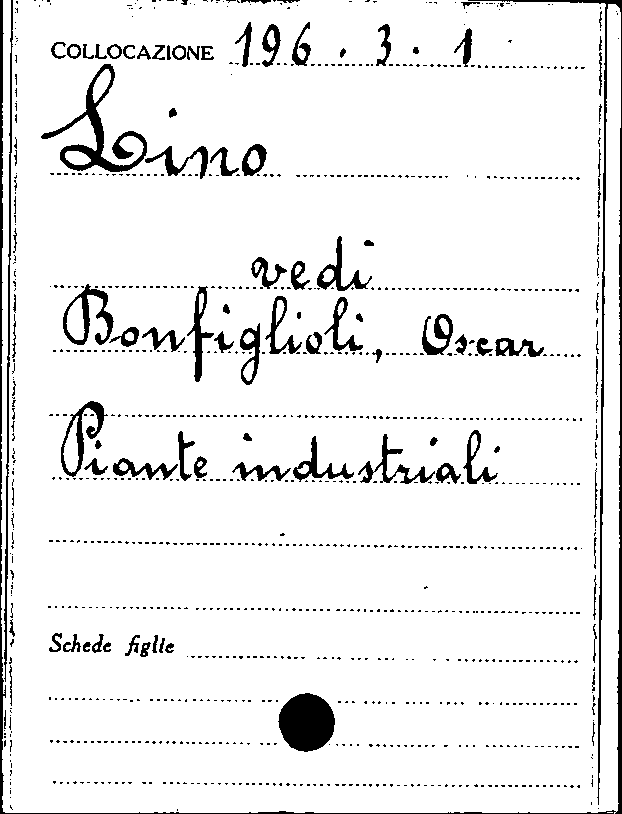 COLLOCAZIONE 196.3.1
Lino
vedi
Bonfiglioli, Oscar
Piante industriali
Schede figlie